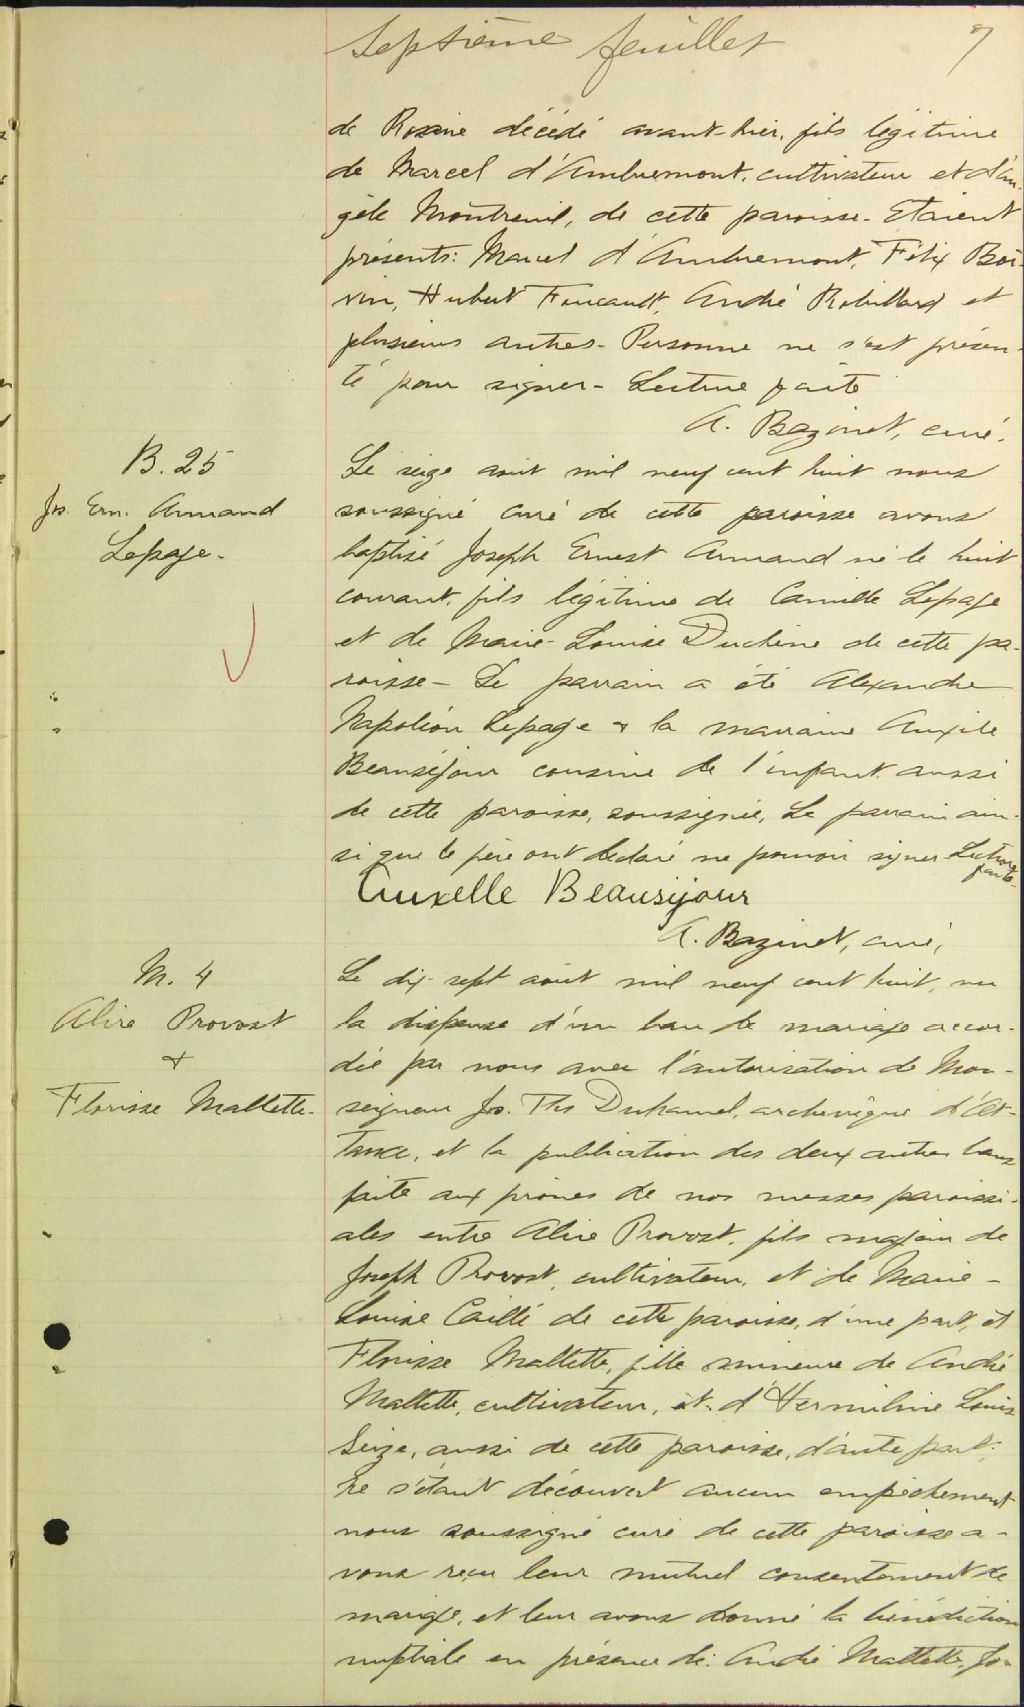 Septième feuillet 7
de Rosaire décédé avant-hier, fils légitime
de Marcel d'Ambremont, cultivateur et d'An-
gèle Montreuil, de cette paroisse. Etaient
présents: Marcel d'Ambremont, Félix Boi-
vin, Hubert Foucault, André Robillard et
plusieurs autres. Personne ne s'est présen-
té pour signer - Lecture faite
A. Bazinet, curé.
B. 25
Jos. Ern. Armand
Lepage -
Le seize août mil neuf cent huit nous
soussigné curé de cette paroisse avons
baptisé Joseph Ernest Armand né le huit
courant, fils légitime de Camille Lepage
et de Marie-Louise Duchène de cette pa-
roisse - Le parrain a été Alexandre
Napoléon Lepage & la marraine
Beauséjour cousine de l'enfant aussi
de cette paroisse, soussignée, Le parrain ain-
si que le père ont déclaré ne pouvoir signer Lecture
faite -
Auxelle Beauséjour
A. Bazinet, curé,
M. 4
Alire Provost
+
Florisse Mallette -
Le dix-sept août mil neuf cent huit, vu
la dispense d'un ban de mariage accor-
dée par nous avec l'autorisation de Mon-
seigneur Jos. Ths Duhamel, archevêque d'Ot-
tawa, et la publication des deux autres bans
faite aux prônes de nos messes paroissi-
ales entre Alire Provost, fils majeur de
Joseph Provost, cultivateur, et de Marie-
Louise Caillé de cette paroisse, d'une part, et
Florisse Mallette, fille mineure de André
Mallette, cultivateur, et d'Herméline Louis
Seize, aussi de cette paroisse, d'autre part;
ne s'étant découvert aucun empêchement
nous soussigné curé de cette paroisse a-
vons reçu leur mutuel consentement de
mariage, et leur avons donné la bénédiction
nuptiale en présence de: André Mallette, Jo-